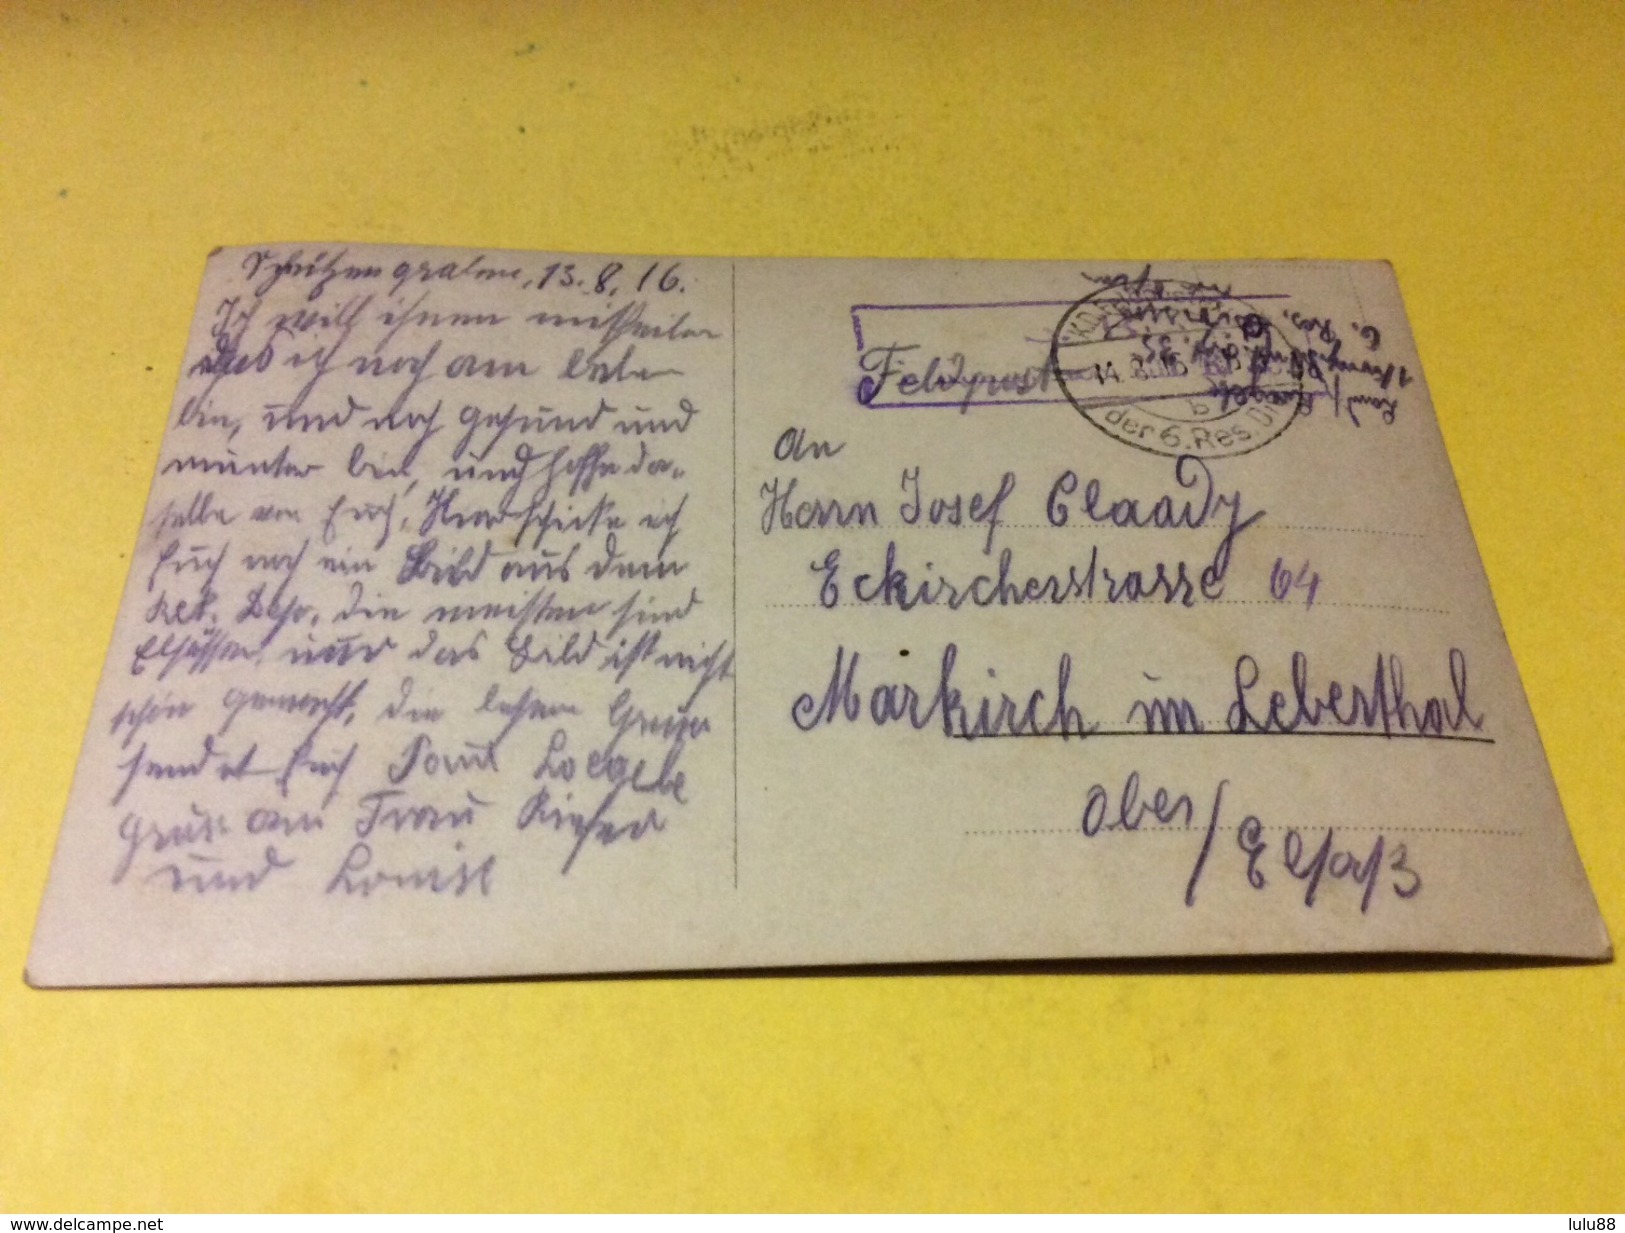 Schützengraben, 13.8.16.
Ich will ihnen mittheilen
das ich noch am leben
bin, und noch gesund und
munter bin, und hoffe da-
selbe von Euch, Hier schicke ich
Euch noch ein Bild aus dem
Rek. Dep. die meisten sind
Elsässer, nur das Bild ist nicht
schön gemacht, die besten Grüße
sendet Euch Paul Loegele
Gruß an Frau Kiefer
und Louise
Feldpost
14.8.16
b
der 6. Res. Div.
6. Res.
An
Herrn Josef Claady
Eckircherstrasse 64
Markirch im Leberthal
Ober/Elsaß
www.delcampe.net
lulu88